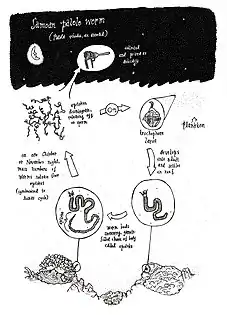 Samoan palolo worm
(Palola viridis, an annelid)
colored
and prized as
delicacy
epitokes
disintegrate,
releasing egg
or sperm
trochophore
larva
plankton
develops
into adult
and settles
on reef
on one October
or November night,
mass numbers of
worms release their
epitokes
(synchronized to
lunar cycle)
worm buds
swimming, gamete-
filled chain of body
called epitoke